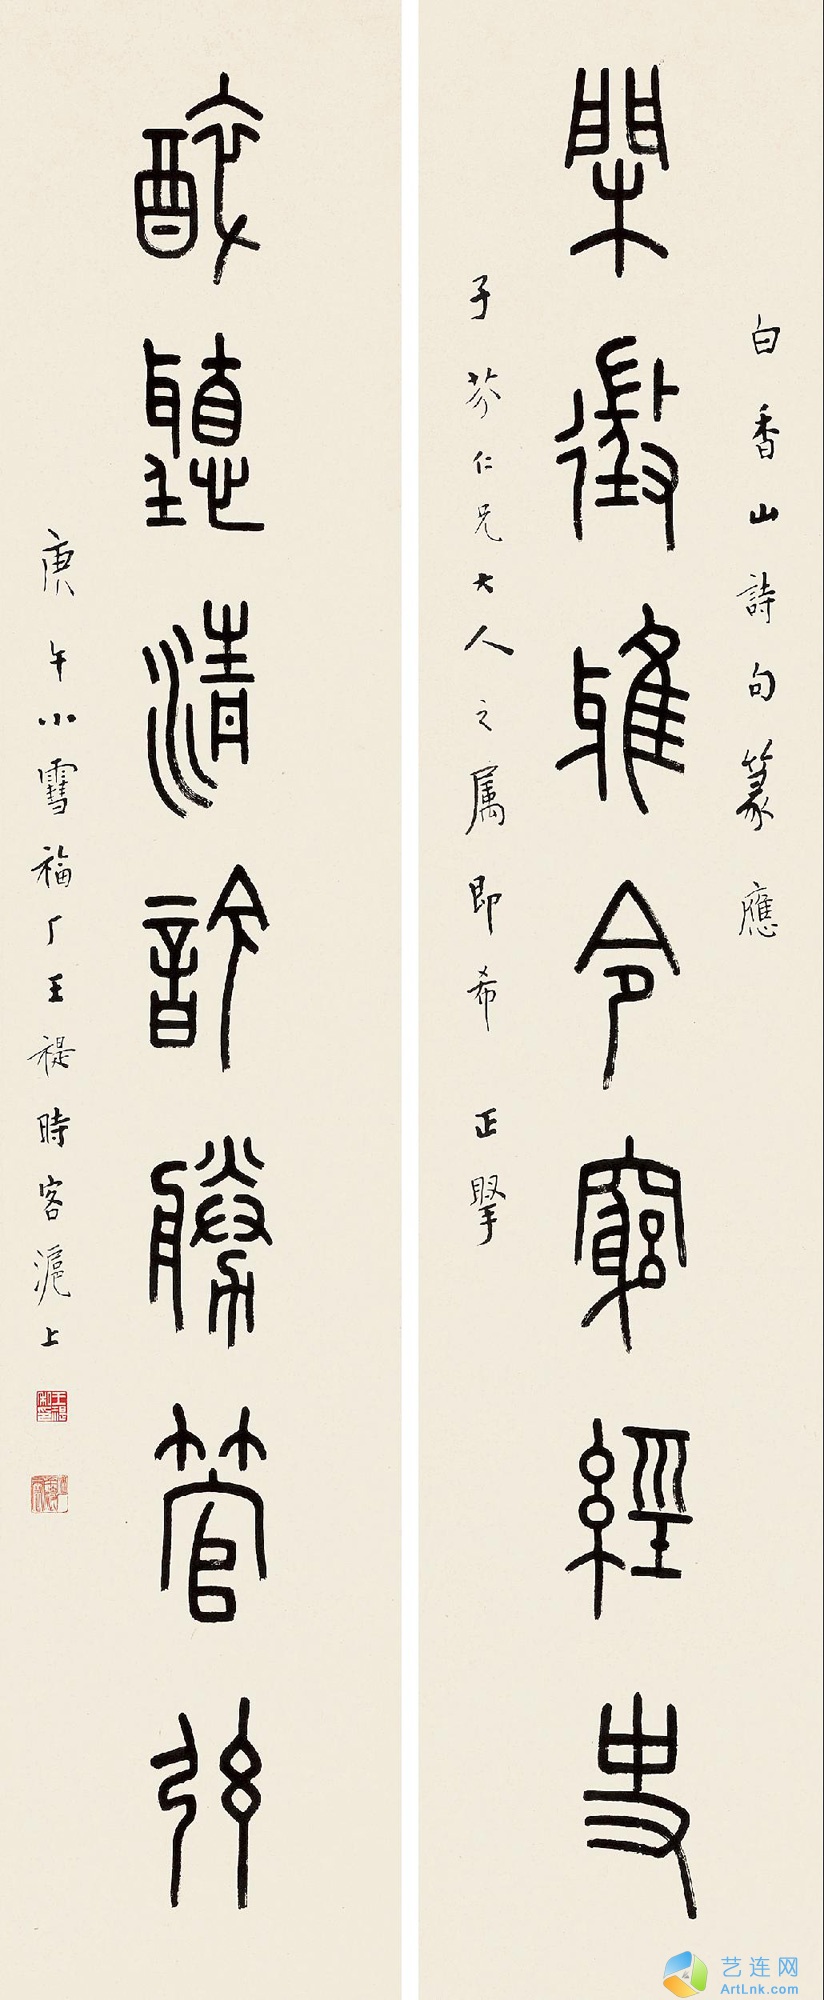 白香山詩句篆應
閑徵雅令窮經史
子芬仁兄大人之属即希正擘
醉聽清吟勝管弦
庚午小雪福厂王禔時客滬上
艺连网
ArtLnk.com